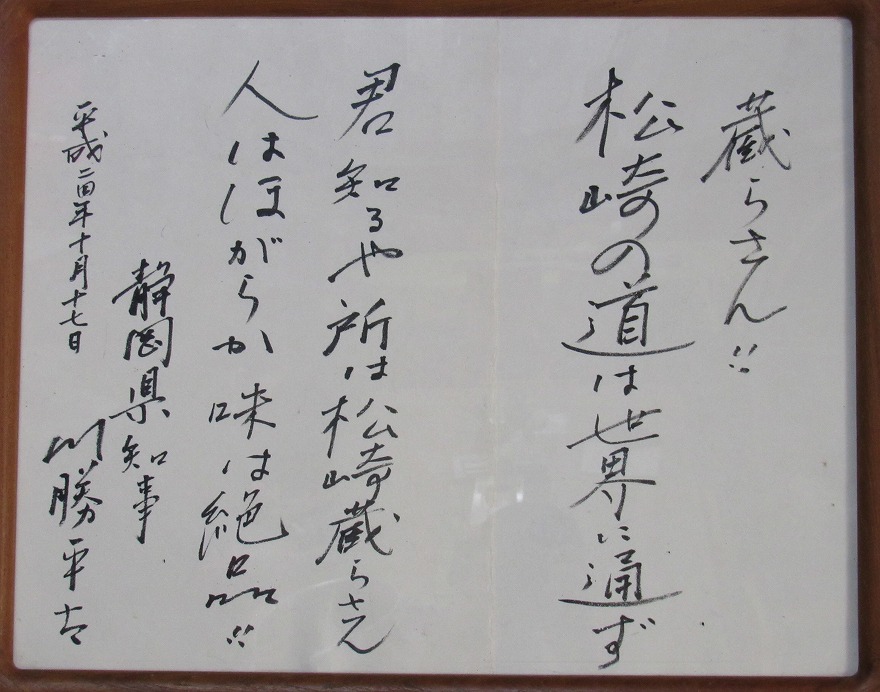 蔵らさん!!
松崎の道は世界に通ず
君知るや所は松崎蔵らさん
人はほがらか味は絶品!!
平成二四年十月十七日
静岡県知事
川勝平太